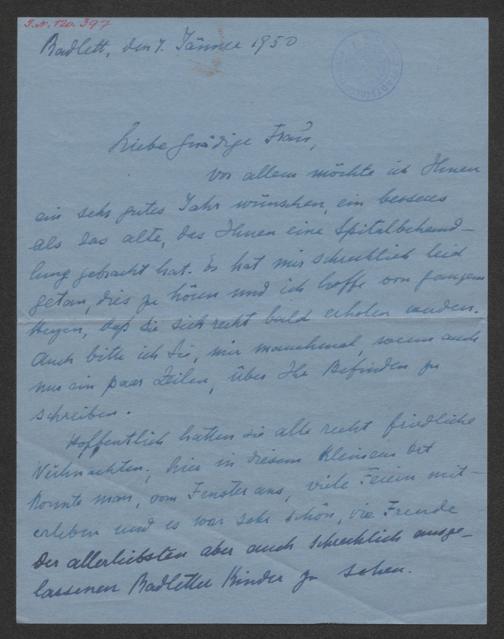 I.N. No. 397
Radlett, den 7. Jänner 1950
Liebe gnädige Frau,
vor allem möchte ich Ihnen
ein sehr gutes Jahr wünschen, ein besseres
als das alte, das Ihnen eine Spitalbehand-
lung gebracht hat. Es hat mir schrecklich leid
getan, dies zu hören und ich hoffe von ganzem
Herzen, daß Sie sich recht bald erholen werden.
Auch bitte ich Sie, mir manchmal, wenn auch
nur ein paar Zeilen, über Ihr Befinden zu
schreiben.
Hoffentlich hatten Sie alle recht friedliche
Weihnachten; hier in diesem kleinen Ort
konnte man, vom Fenster aus, viele Feiern mit-
erleben und es war sehr schön, die Freude
der allerliebsten aber auch schrecklich ausge-
lassenen Radletter Kinder zu sehen.